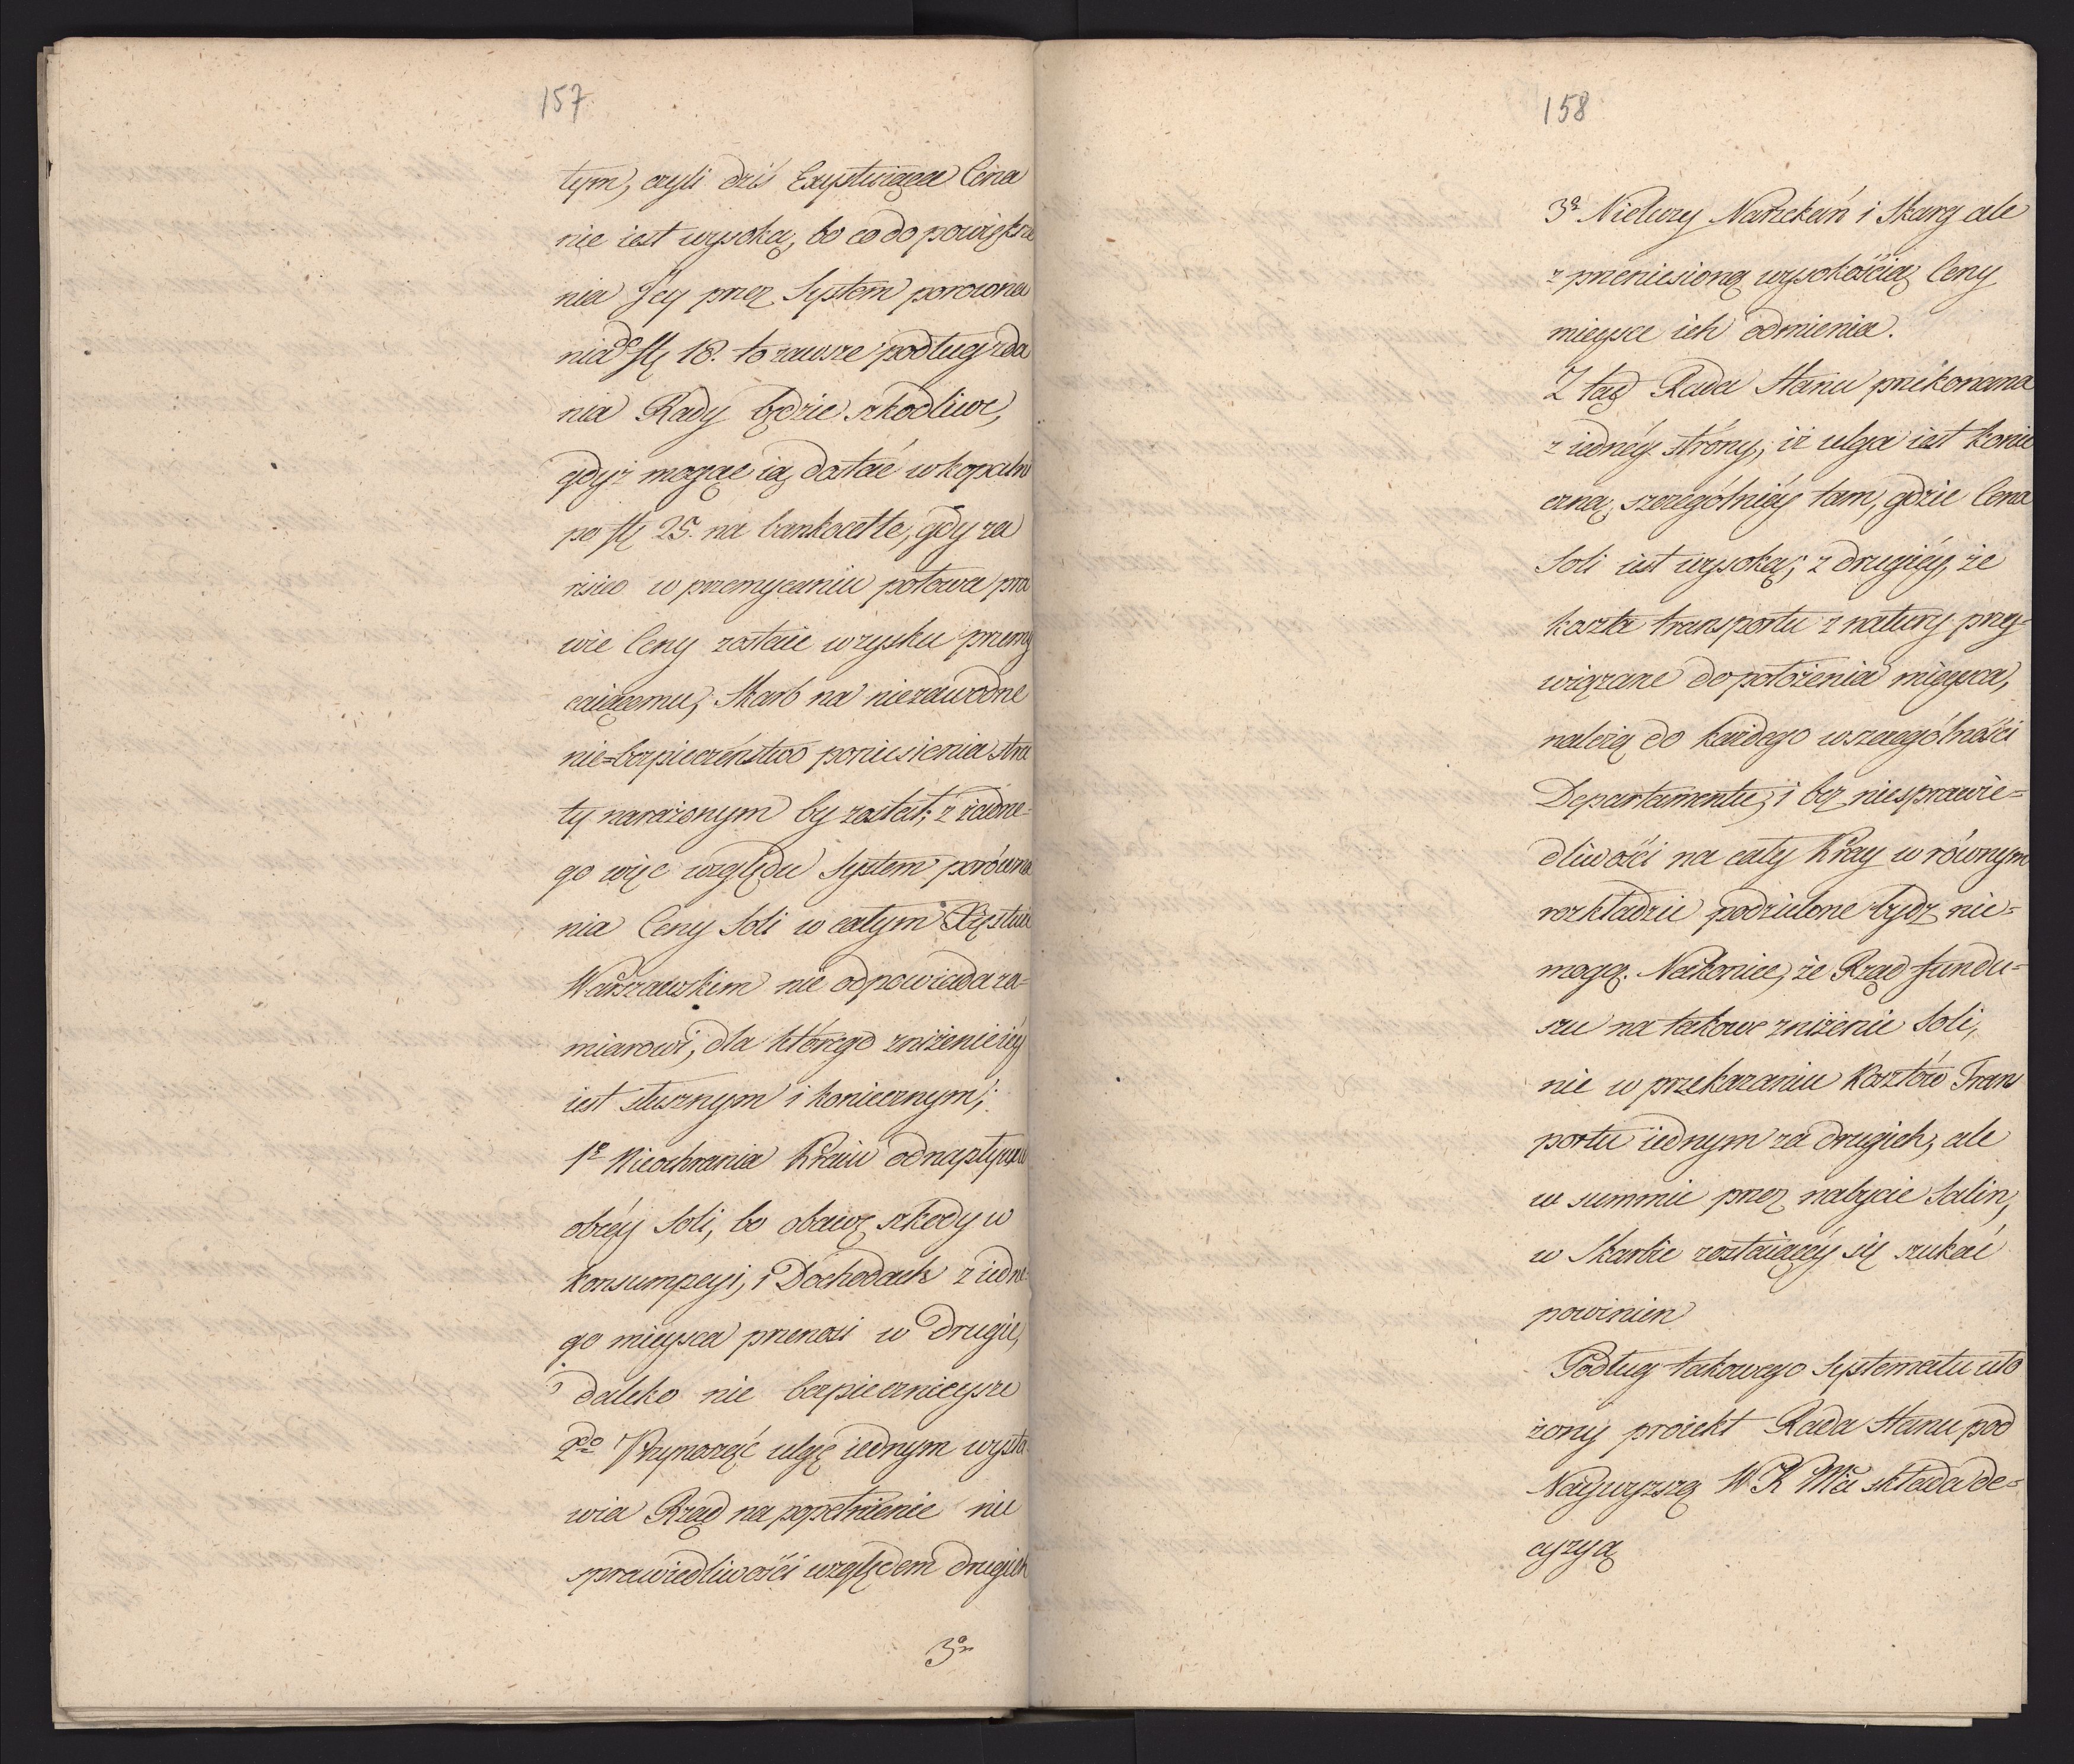 157
tym, czyli dziś Exystuiąca Cena
nie iest wysoką, bo co do powiększe
nia Jey przez System porowna
nia do fl 18. to zawsze podług zda
nia Rady będzie szkodliwe,
gdyż mogąc ią dostać w kopalni
po fl 25. na bankocetle, gdy za
nisco w przemycaniu połowa pra
wie Ceny zostaie w zysku przemy
caiącemu, Skarb na niezawodne
nie=bezpieczeństwo poniesienia stra
ty narażonym by został; z żadne=
go więc względu System porówna
nia Ceny Soli w całym Xięstwie
Warszawskim nie odpowiada za=
miarowi, dla którego zniżenie iéy
iest słusznym i koniecznym;
1º Nieochrania Kraiu od napływu
obcéy Soli, bo obawę szkody w
konsumpcyi, i Dochodach z iedne=
go mieysca przenosi w drugie,
daleko nie bezpiecznieysze
2do Przynosząc ulgę iednym wysta
wia Rząd na popełnienie nie
sprawiedliwości względem drugich
3º
158
3º Nieleczy Narzekań i Skarg ale
z przeniesioną wysokością Ceny
mieysce ich odmienia.
Z tąd Rada Stanu przekonana
z iednéy strony, iż ulga iest konie
czną, szczególniéy tam, gdzie Cena
Soli iest wysoką; z drugiéy, że
koszta transportu z natury przy=
wiązane do położenia mieysca,
należą do każdego wszczególności
Departamentu, i bez niesprawie=
dliwości na cały Kray w równym
rozkładzie podzielone bydz nie=
mogą. Nakoniec, że Rząd fundu=
szu na takowe zniżenie Soli,
nie w przekazaniu Kosztów Trans
portu iednym za drugich, ale
w summie przez nabycie Salin,
w Skarbie zostaiącéy się szukać
powinien
Podług takowego Systematu uło
żony proiekt Rada Stanu pod
Naywyższą W. K Mci składa de=
cyzyą